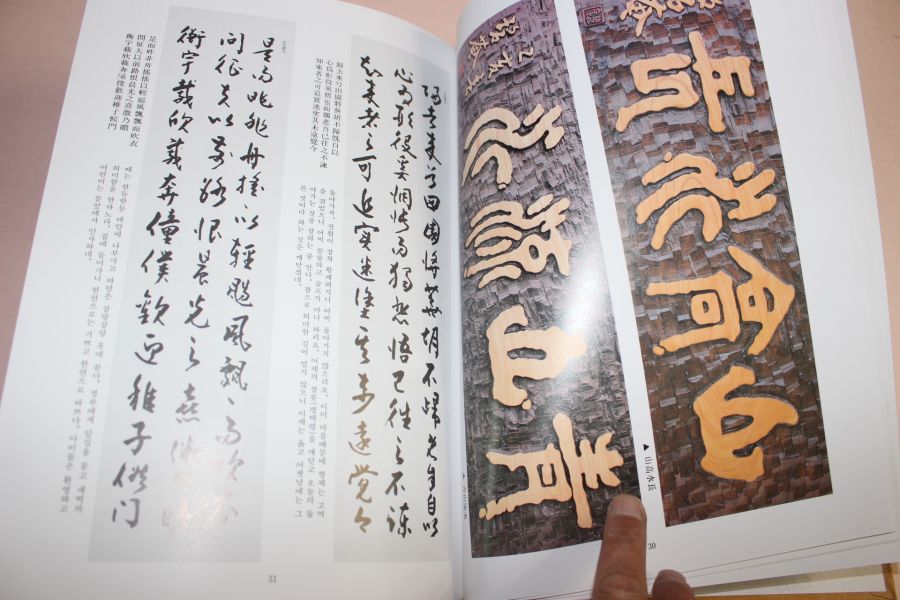 山高水長
▲ 山高水長
30
靑山綠水
歸去來兮田園將蕪胡不歸旣自以
心爲形役奚惆悵而獨悲悟已往之不諫
知來者之可追實迷塗其未遠覺今
歸去來兮田園將蕪胡不歸旣自以
心爲形役奚惆悵而獨悲悟已往之不諫
知來者之可追實迷塗其未遠覺今
돌아가자, 전원이 장차 황폐해지니 어찌 돌아가지 않으리요. 이미 마음때문에 형체는 고역
을 겪었으니 어찌 쓸쓸하고 슬프지 아니 하리요. 어제의 잘못(평택령)을 깨닫고 오늘의 돌
아가는 것을 잘하는 줄 안다. 참으로 희미한 길이 멀지 않으니 이제는 옳고 어젯날에는 그
른 것이라 하는 것은 깨달았다.
是而昨非舟搖搖以輕颺風飄飄而吹衣
問征夫以前路恨晨光之熹微乃瞻
衡宇載欣載奔僮僕歡迎稚子候門
是而昨非舟搖搖以輕颺風飄飄而吹衣
問征夫以前路恨晨光之熹微乃瞻
衡宇載欣載奔僮僕歡迎稚子候門
배는 한들한들 바람에 나부끼고 바람은 살랑살랑 옷에 분다. 정부에게 앞길을 묻고 새벽의
희미함을 한하노라. 집에 들어가니 한편으로는 기쁘고 한편으로 바쁘다. 아이들은 환영하고
어린이는 문앞에서 인사하네.
31